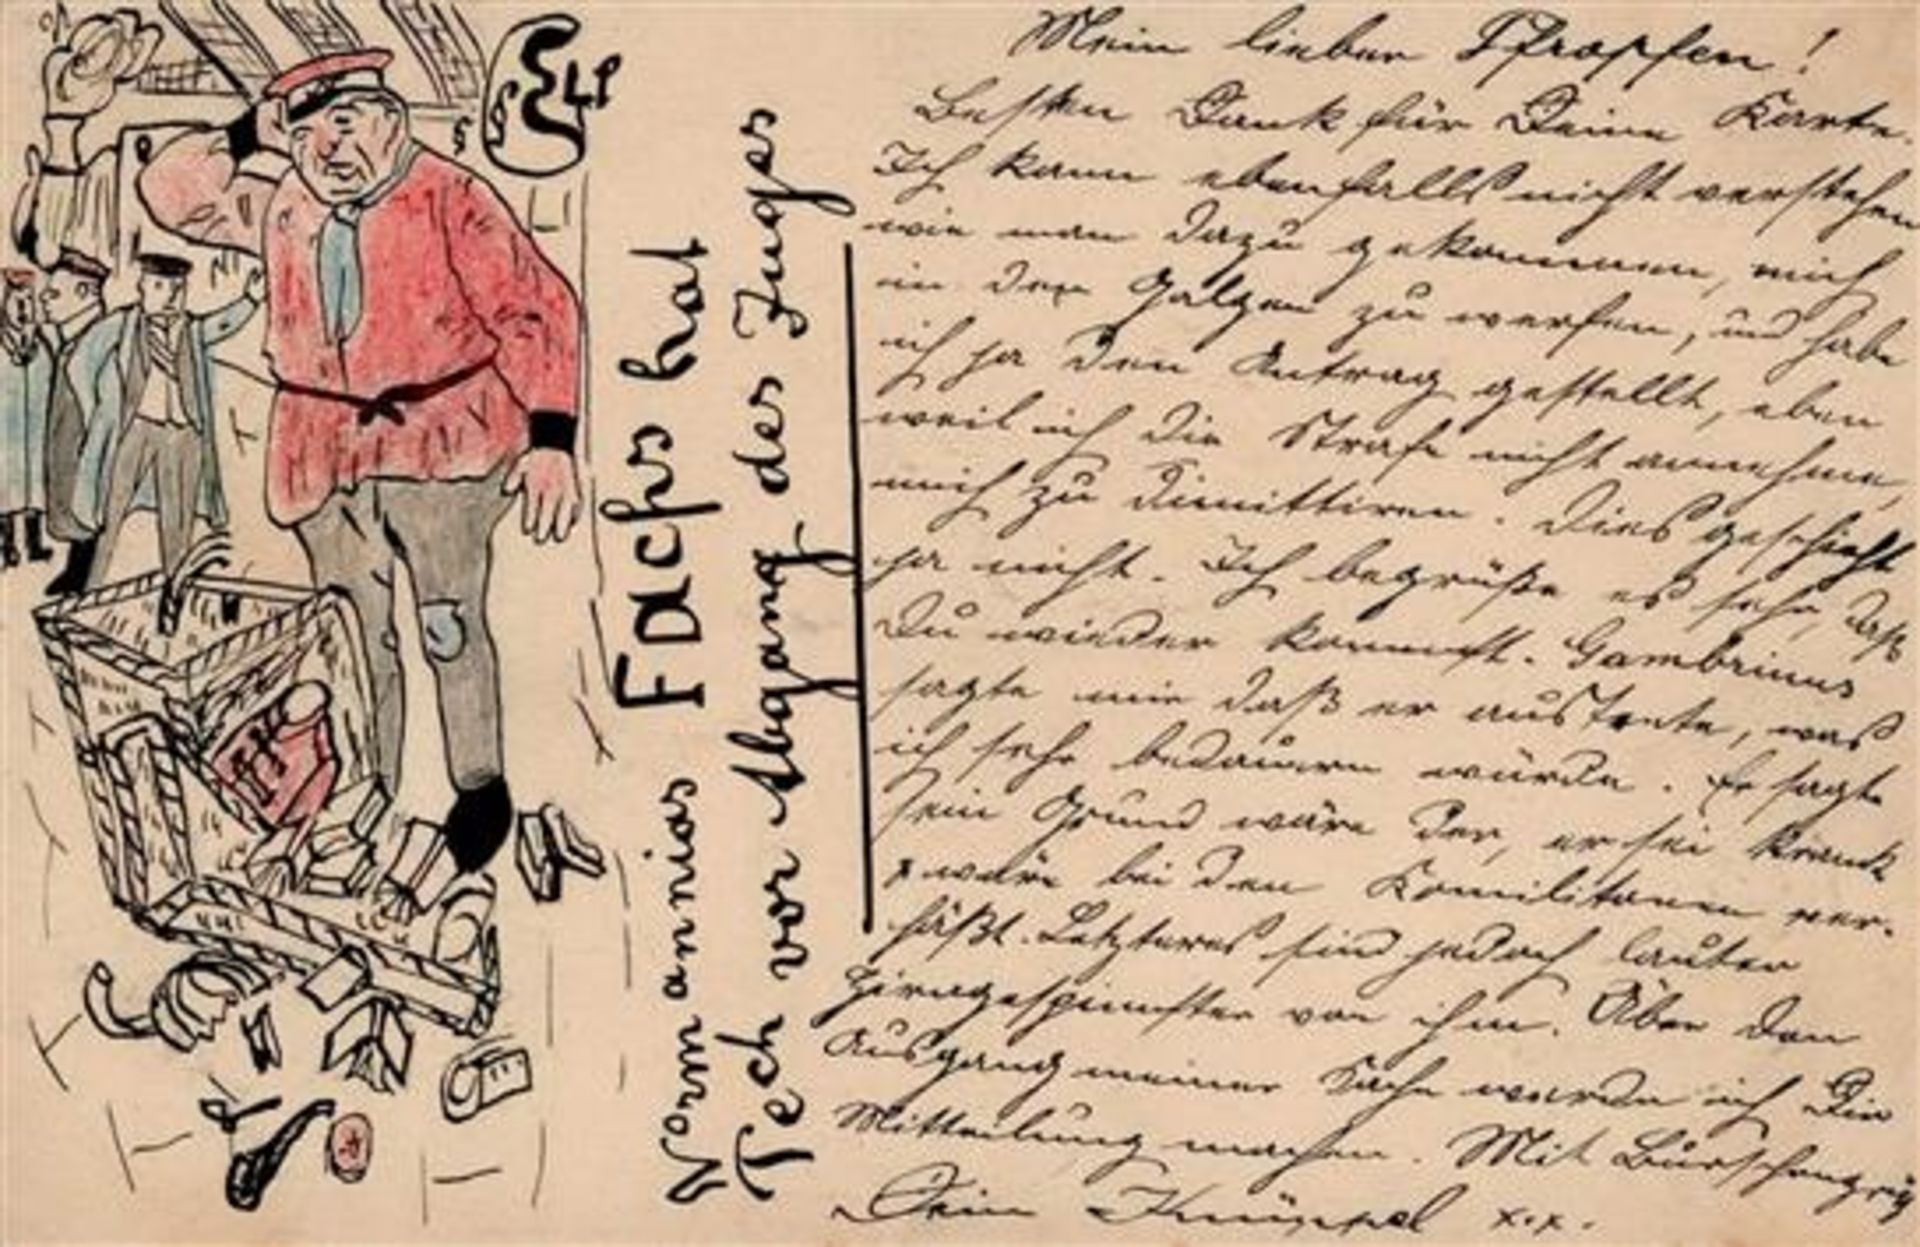 ELP
Normannias Fachs hat
Pech vor Abgang des Zuges
Mein lieber Pfropfen!
Besten Dank für Deine Karte.
Ich kann ebenfalls nicht verstehen
wie man dazu gekommen, mich
in den Galgen zu werfen, und habe
ich ja den Antrag gestellt, eben
weil ich die Strafe nicht annehme,
mich zu dimittiren. Dies geschieht
ja nicht. Ich begrüße es sehr, daß
Du wieder kommst. Gambrinus
sagte mir daß er austrete, was
ich sehr bedauern würde. Er sagte
sein Grund wäre der, er sei krank
& wäre bei den Komilitonen ver-
häßt. Letzteres sind jedoch lauter
Hirngespinster von ihm. Über den
Ausgang meiner Sache werde ich Dir
Mitteilung machen. Mit Burschengruß
Dein Knüppel x.x.